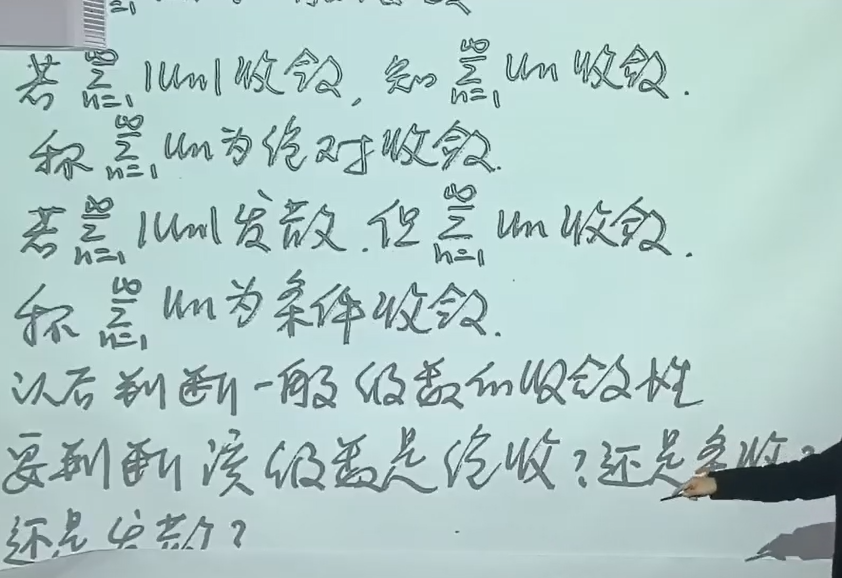 若 ∑_{n=1}^{∞} |Un| 收敛, 知 ∑_{n=1}^{∞} Un 收敛.
称 ∑_{n=1}^{∞} Un 为绝对收敛.
若 ∑_{n=1}^{∞} |Un| 发散. 但 ∑_{n=1}^{∞} Un 收敛.
称 ∑_{n=1}^{∞} Un 为条件收敛.
以后判断一般级数的收敛性
要判断该级数是绝收?还是条收?
还是发散?